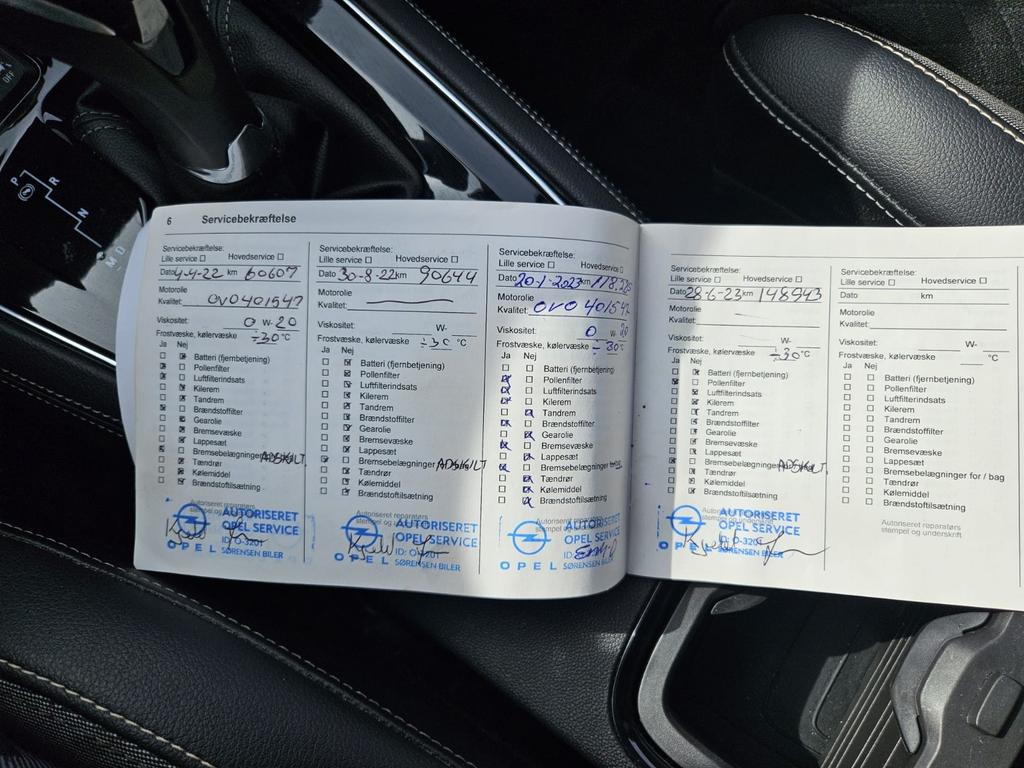 OFF
P
R
N
M D
6 Servicebekræftelse
Servicebekræftelse:
Lille service ☐ Hovedservice ☐
Dato 4-4-22 km 60607
Motorolie
Kvalitet: OVO401547
Viskositet: 0 W- 20
Frostvæske, kølervæske ÷30 °C
Ja Nej
Batteri (fjernbetjening)
Pollenfilter
Luftfilterindsats
Kilerem
Tandrem
Brændstoffilter
Gearolie
Bremsevæske
Lappesæt
Bremsebelægninger ADSKILT
Tændrør
Kølemiddel
Brændstoftilsætning
Autoriseret reparatørs
AUTORISERET
OPEL SERVICE
ID: O-3201
OPEL SØRENSEN BILER
Servicebekræftelse:
Lille service ☐ Hovedservice ☐
Dato 30-8-22 km 90644
Motorolie
Kvalitet:
Viskositet: W-
Frostvæske, kølervæske ÷30 °C
Ja Nej
Batteri (fjernbetjening)
Pollenfilter
Luftfilterindsats
Kilerem
Tandrem
Brændstoffilter
Gearolie
Bremsevæske
Lappesæt
Bremsebelægninger ADSKILT
Tændrør
Kølemiddel
Brændstoftilsætning
AUTORISERET
OPEL SERVICE
OPEL SØRENSEN BILER
Servicebekræftelse:
Lille service ☐ Hovedservice
Dato 20-1-2023 km
Motorolie
Kvalitet: OVO 401547
Viskositet: 0 W- 20
Frostvæske, kølervæske ÷30 °C
Ja Nej
Batteri (fjernbetjening)
Pollenfilter
Luftfilterindsats
Kilerem
Tandrem
Brændstoffilter
Gearolie
Bremsevæske
Lappesæt
Bremsebelægninger
Tændrør
Kølemiddel
Brændstoftilsætning
AUTORISERET
OPEL SERVICE
OPEL SØRENSEN BILER
Servicebekræftelse:
Lille service ☐ Hovedservice ☐
Dato 28-6-23 km 148943
Motorolie
Kvalitet:
Viskositet: W-
Frostvæske, kølervæske ÷30 °C
Ja Nej
Batteri (fjernbetjening)
Pollenfilter
Luftfilterindsats
Kilerem
Tandrem
Brændstoffilter
Gearolie
Bremsevæske
Lappesæt
Bremsebelægninger ADSKILT
Tændrør
Kølemiddel
Brændstoftilsætning
AUTORISERET
OPEL SERVICE
ID: O-3201
OPEL SØRENSEN BILER
Servicebekræftelse:
Lille service ☐ Hovedservice ☐
Dato km
Motorolie
Kvalitet:
Viskositet: W-
Frostvæske, kølervæske °C
Ja Nej
Batteri (fjernbetjening)
Pollenfilter
Luftfilterindsats
Kilerem
Tandrem
Brændstoffilter
Gearolie
Bremsevæske
Lappesæt
Bremsebelægninger for / bag
Tændrør
Kølemiddel
Brændstoftilsætning
Autoriseret reparatørs
stempel og underskrift